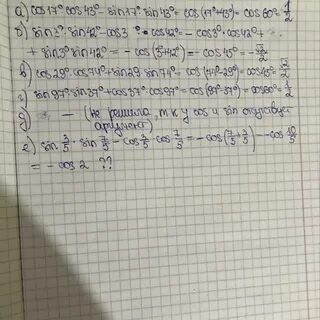 а) cos17°cos43° - sin17°sin43° = cos(17°+43°) = cos60° = 1/2
б) sin3°·sin42° - cos3°·cos42° = -cos3°·cos42° +
+ sin3°sin42° = -cos(3+42°) = -cos45° = -√2/2
в) cos29°cos74° + sin29 sin74° = cos(74°-29°) = cos45° = √2/2
г) sin97°sin37° + cos37°cos97° = cos(97°-37°) = cos60° = 1/2
д) — (не решила, т.к у cos и sin отсутствует
аргумент)
е) sin 3/5 · sin 7/5 - cos 3/5 cos 7/5 = -cos(7/5+3/5) = -cos 10/5
= -cos2 ??